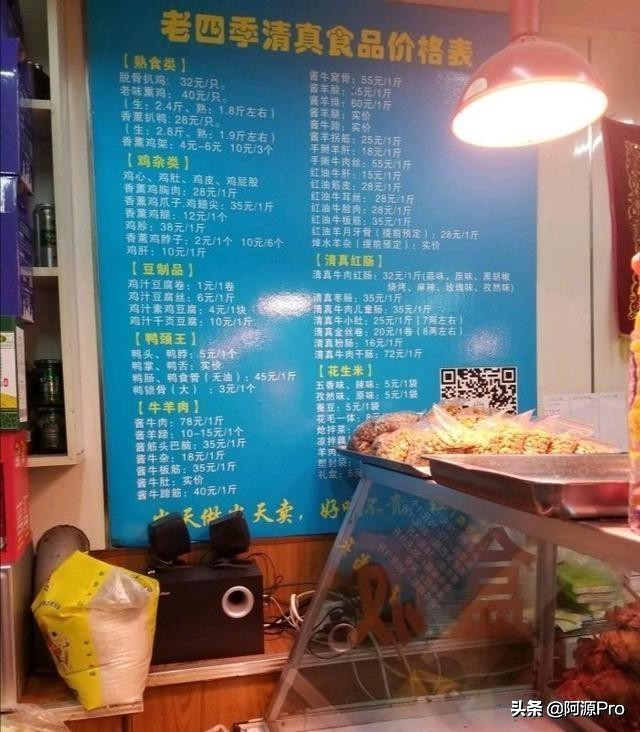 老四季清真食品价格表
【熟食类】
脱骨扒鸡: 32元/只。
老味熏鸡: 40元/只。
(生: 2.4斤、熟: 1.8斤左右)
香薰扒鸭: 28元/只。
(生: 2.8斤、熟: 1.9斤左右)
香薰鸡架: 4元-6元 10元/3个
【鸡杂类】
鸡心、鸡肚、鸡皮、鸡屁股
香薰鸡胸肉: 28元/1斤
香薰鸡爪子.鸡翅尖: 35元/1斤
香薰鸡腿: 12元/1个
鸡胗: 38元/1斤
香薰鸡脖子: 2元/1个 10元/6个
鸡肝: 10元/1斤
【豆制品】
鸡汁豆腐卷: 1元/1卷
鸡汁豆腐丝: 6元/1斤
鸡汁素鸡豆腐: 4元/1块
鸡汁千页豆腐: 10元/1斤
【鸭颈王】
鸭头、鸭脖: 5元/1个
鸭掌、鸭舌: 实价
鸭肠、鸭食管(无油): 45元/1斤
鸭锁骨(大): 3元/1个
【牛羊肉】
酱牛肉: 78元/1斤
酱羊蹄: 10-15元/1个
酱筋头巴脑: 35元/1斤
酱牛杂: 18元/1斤
酱牛板筋: 35元/1斤
酱牛肚: 实价
酱牛蹄筋: 40元/1斤
酱牛窝骨: 55元/1斤
酱羊脸: 35元/1斤
酱羊排: 60元/1斤
酱羊腿: 实价
酱牛蹄: 实价
酱羊拐筋: 25元/1斤
手掰羊肝: 18元/1斤
手撕牛肉丝: 55元/1斤
红油牛肝: 15元/1斤
红油筋皮: 28元/1斤
红油牛耳丝: 28元/1斤
红油牛脸肉: 28元/1斤
红油牛板筋: 35元/1斤
红油羊月牙骨(提前预定): 28元/1斤
焯水羊杂(提前预定): 实价
【清真红肠】
清真牛肉红肠: 32元/1斤(蒜味、原味、黑胡椒
烧烤、麻辣、玫瑰味、孜然味)
清真枣肠: 35元/1斤
清真牛肉儿童肠: 35元/1斤
清真牛小肚: 25元/1斤(7两左右)
清真金丝卷: 20元/1卷(8两左右)
清真粉肠: 16元/1斤
清真牛肉干肠: 72元/1斤
【花生米】
五香味、辣味: 5元/1袋
孜然味、原味: 5元/1袋
蚕豆: 5元/1袋
花毛一体: 8元
炝拌菜:
凉拌藕
羊肉
塑封袋
礼盒: 5元
当天做当天卖, 好吃不贵
盒
头条 @阿源Pro